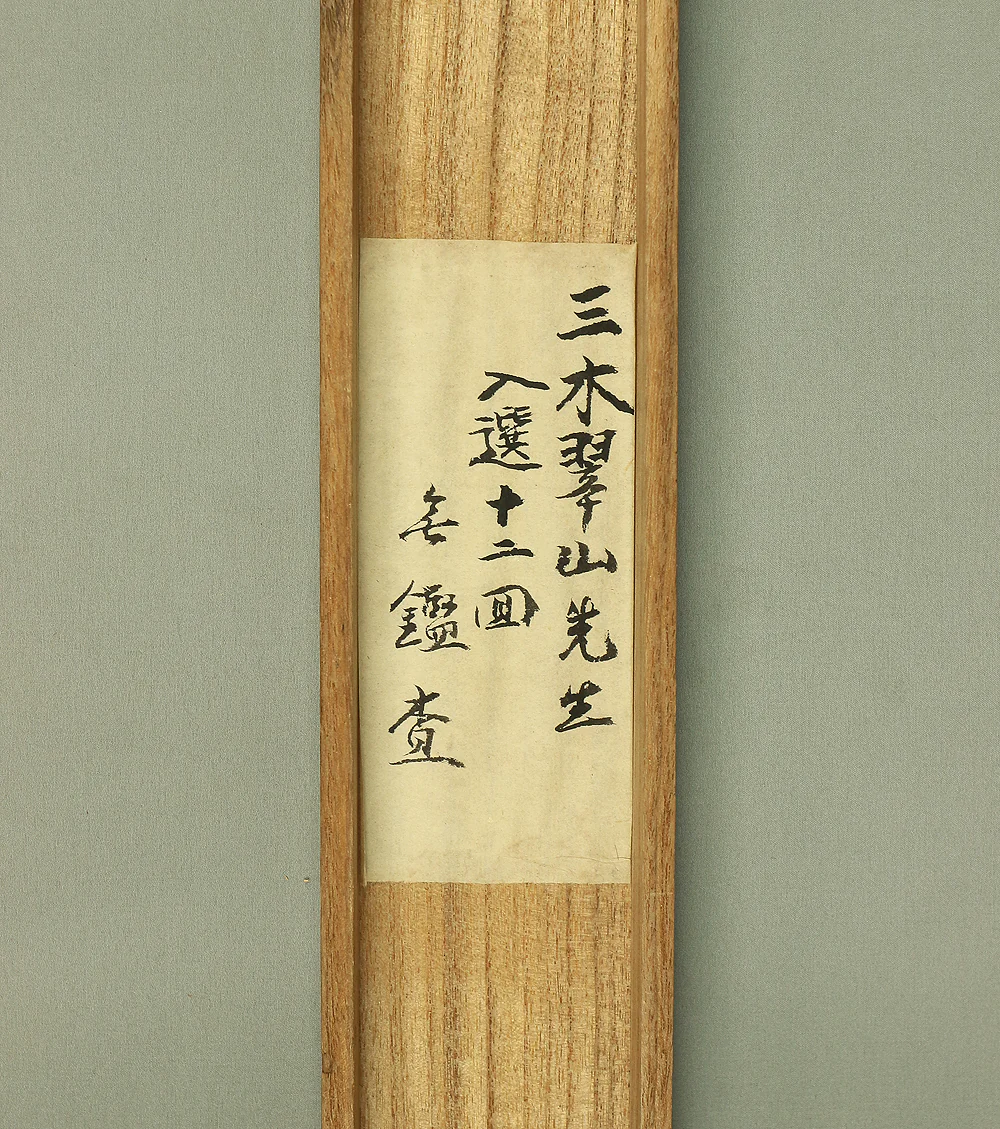 三木翠山先生
入選十二回
無鑑査